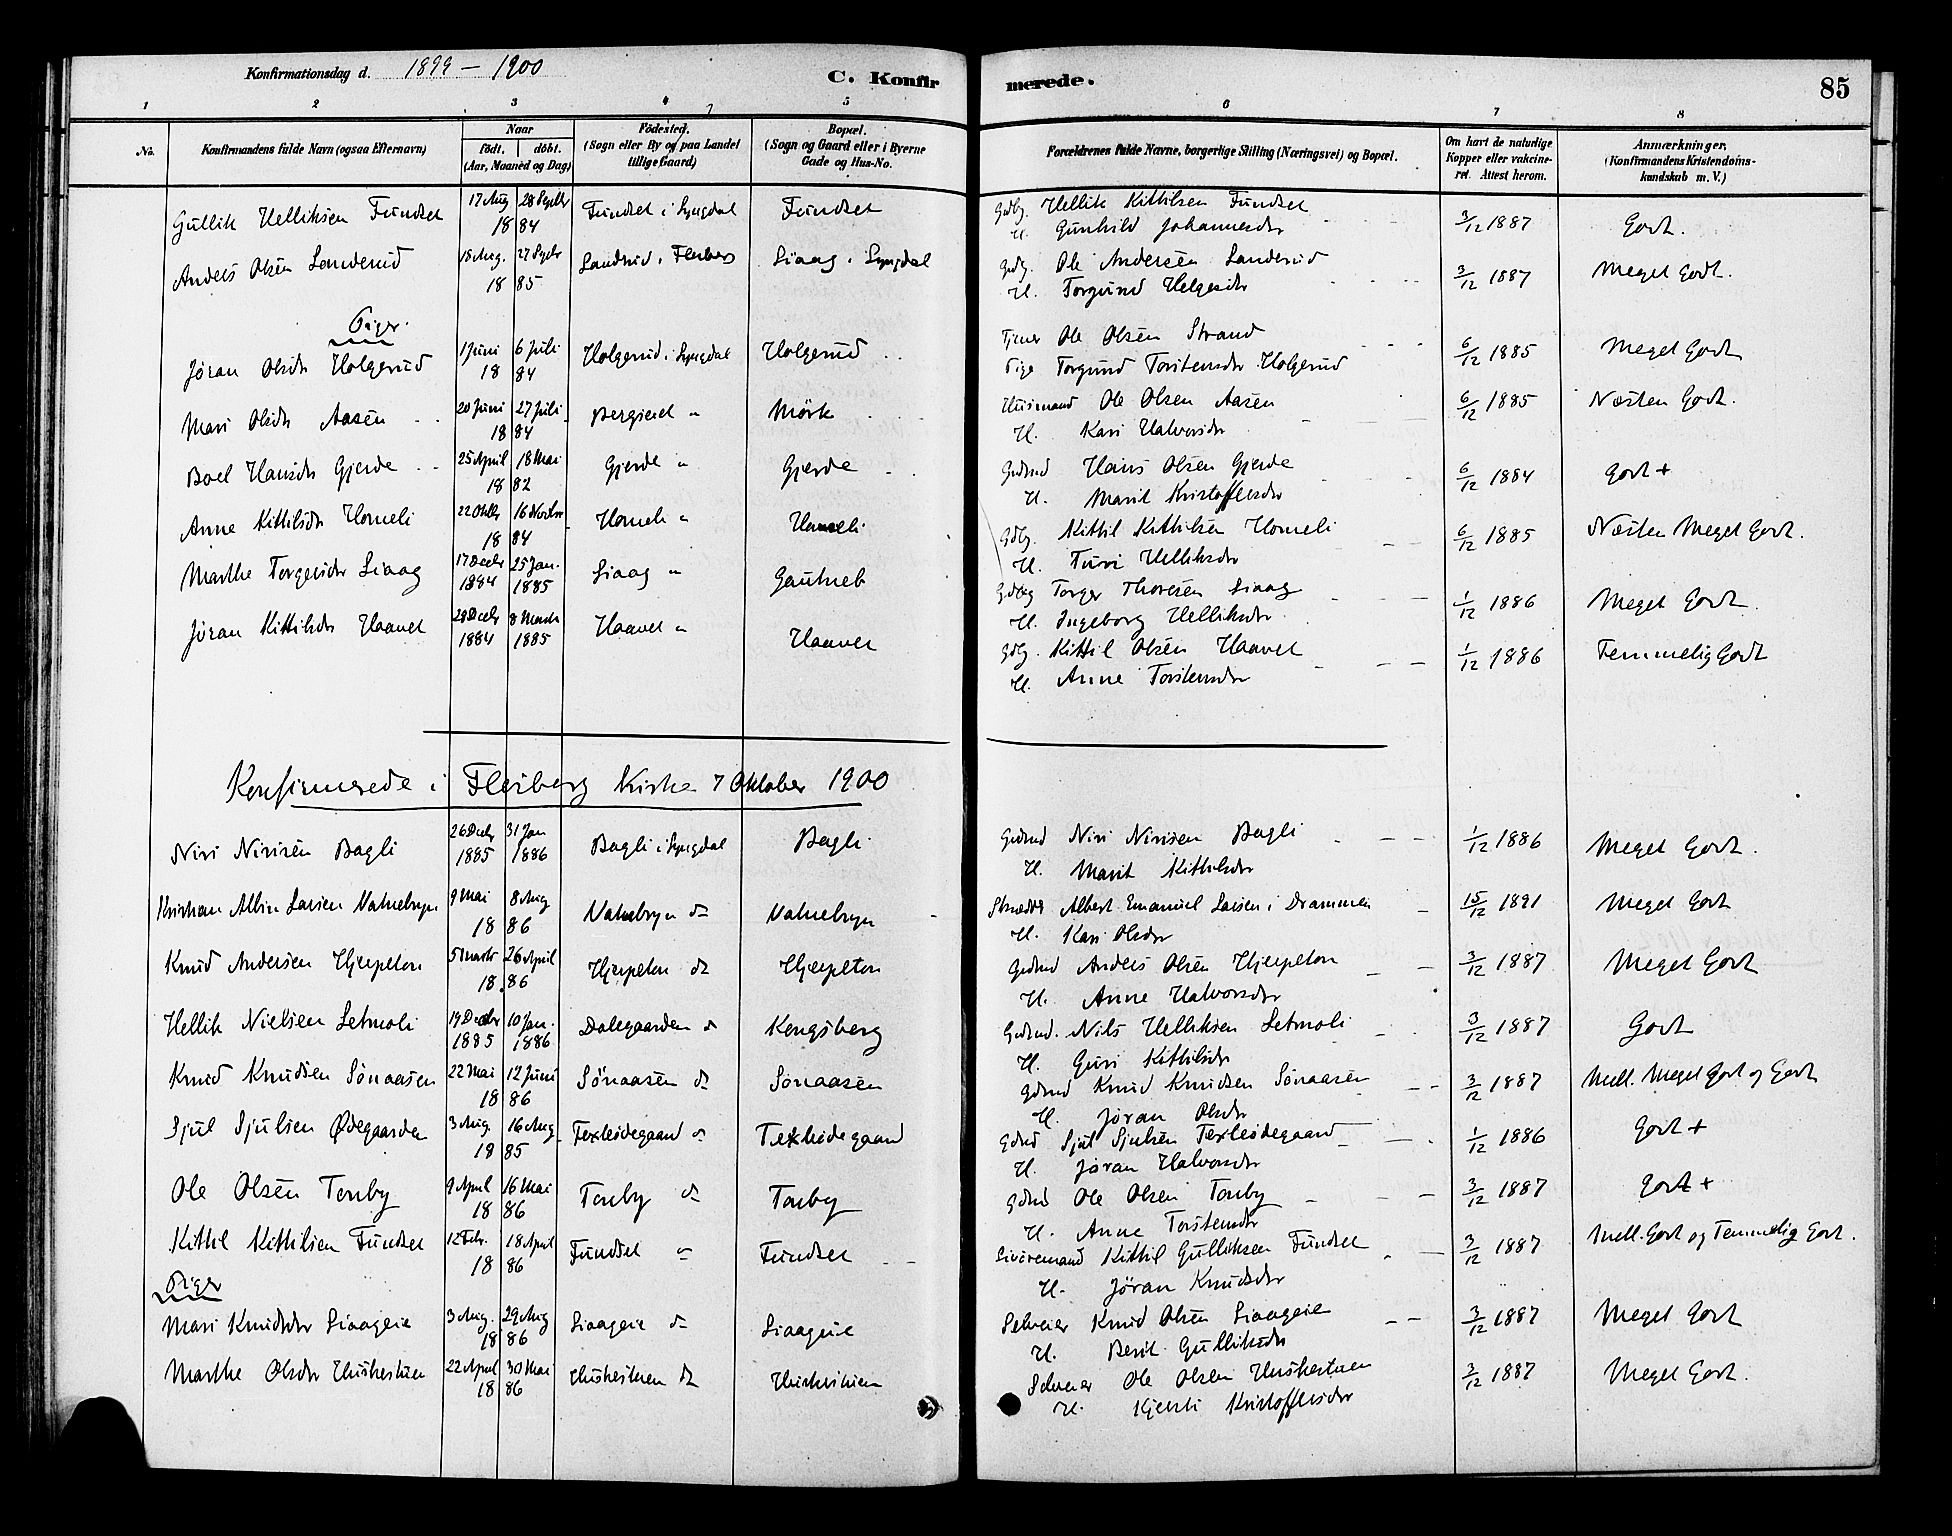 Konfirmationsdag d. 1899 – 1900
C. Konfirmerede.
85
1 2 3 4 5 6 7 8
No.
Konfirmandens fulde Navn (ogsaa Efternavn)
Naar
födt. döbt.
(Aar, Maaned og Dag)
Födested.
(Sogn eller By og paa Landet
tillige Gaard)
Bopæl.
(Sogn og Gaard eller i Byerne
Gade og Hus-No.
Forældrenes fulde Navne, borgerlige Stilling (Næringsvei) og Bopæl.
Om havt de naturlige
Kopper eller vakcine-
ret. Attest herom.
Anmærkninger.
(Konfirmandens Kristendoms-
kundskab m. V.)
Gullik Helliksen Fundset 17 Aug 28 Septbr 18 84 Fundset i Lyngdal Fundset Gdbg. Hellik Kittilsen Fundset 3/12 1887 Godt.
H. Gunhild Johannesdr
Anders Olsen Landerud 18 Aug. 27 Septbr 18 85 Landrud i Flesberg Liaag i Lyngdal Gdbg. Ole Andersen Landerud 3/12 1887 Meget Godt.
H. Torgund Helgesdr
Piger.
Jöran Olsdr Holgerud 1 Juni 6 Juli 18 84 Holgerud i Lyngdal Holgerud Tjener Ole Olsen Strand 6/12 1885 Meget Godt
Pige Torgund Torstensdr Holgerud
Mari Olsdr Aasen 20 Juni 27 Juli 18 84 " Mörk Husmand Ole Olsen Aasen 6/12 1885 Næsten Godt.
H. Kari Halvorsdr
Boel Hansdr Gjerde 25 April 18 Mai 18 82 Gjerde " Gjerde Gdmd Hans Olsen Gjerde 6/12 1884 Godt +
H. Marit Kristoffersdr
Anne Kittilsdr Homeli 22 Oktbr 16 Novbr 18 84 Homeli " Homeli Gdbg. Kittil Kittilsen Homeli 6/12 1885 Næsten Meget Godt.
H. Turi Helliksdr
Marthe Torgersdr Liaag 17 Decbr 1884 25 Jan. 1885 Liaag " Gdbrg Torger Thoresen Liaag 1/12 1886 Meget Godt.
H. Ingeborg Helliksdr
Jöran Kittilsdr Haavet 28 Decbr 1884 8 Marts 1885 Haavet " Haavet Gdbg. Kittil Olsen Haavet 1/12 1886 Temmelig Godt
H. Anne Torstensdr
Konfirmerede i Flesberg Kirke 7 Oktober 1900
Niri Nirisen Bagli 26 Decbr 1885 31 Jan 1886 Bagli i Lyngdal Bagli Gdmd Niri Nirisen Bagli 1/12 1886 Meget Godt.
H. Marit Kittilsdr
Kristian Albin Larsen Vatnebryn 9 Mai 8 Aug 18 86 Vatnebryn do Vatnebryn Skrædder Albert Emanuel Larsen i Drammen 15/12 1891 Meget Godt
H. Kari Olsdr
Knud Andersen Hjerpeton 5 Marts 26 April 18 86 Hjerpeton do Hjerpeton Gdmd Anders Olsen Hjerpeton 3/12 1887 Meget Godt
H. Anne Halvorsdr
Hellik Nielsen Letmoli 19 Decbr 1885 10 Jan. 1886 Dalegaarden do Kongsberg Gdmd. Nils Helliksen Letmoli 3/12 1887 Godt
H. Guri Kittilsdr
Knud Knudsen Sönaasen 22 Mai 12 Juni 18 86 Sönaasen do Sönaasen Gdmd Knud Knudsen Sönaasen 3/12 1887 Mell. Meget Godt og Godt
H. Jöran Olsdr
Sjul Sjulsen Ødegaarden 3 Aug. 16 Aug. 18 85 Texleödegaard do Texleödegaard Gdmd Sjul Sjulsen Texleödegaard 1/12 1886 Godt +
H. Jöran Halvorsdr
Ole Olsen Tonby 9 April 16 Mai 18 86 Tonby do Tonby Gdmd Ole Olsen Tonby 3/12 1887 Godt +
H. Anne Torstensdr
Kittil Kittilsen Fundset 12 Febr. 18 April 18 86 Fundset " Fundset Livöremand Kittil Gulliksen Fundset 3/12 1887 Mell. Godt og Temmelig Godt.
H. Jöran Knudsdr
Piger
Mari Knudsdr Liaageie 3 Aug. 29 Aug 18 86 Liaageie do Liaageie Selveier Knud Olsen Liaageie 3/12 1887 Meget Godt
H. Berit Gulliksdr
Marthe Olsdr Huskestuen 22 April 30 Mai 18 86 Huskestuen do Huskestuen Selveier Ole Olsen Huskestuen 3/12 1887 Meget Godt.
H. Kjersti Kristoffersdr